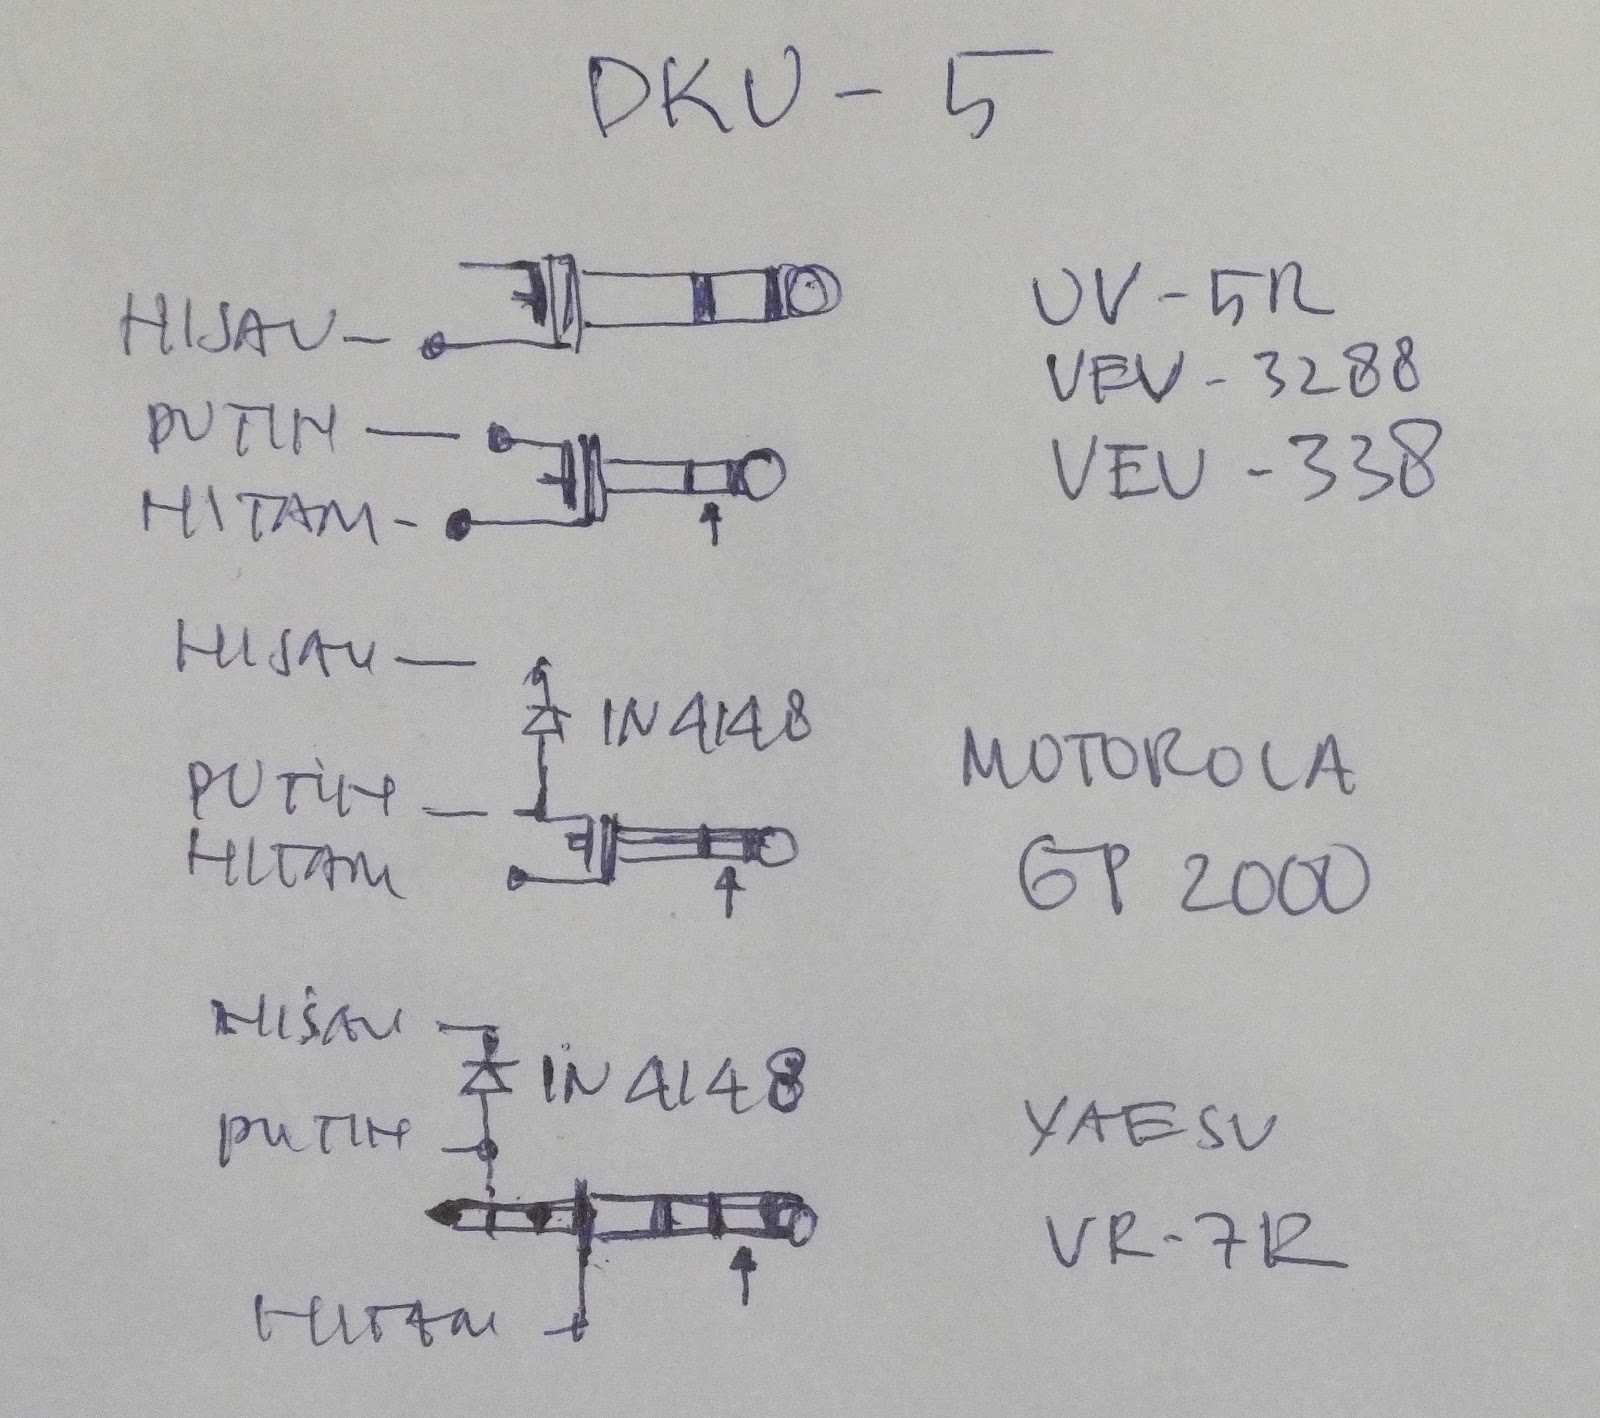 DKU - 5
HIJAU
UV - 5R
VEV - 3288
PUTIH
VEV - 338
HITAM
HIJAU
IN4148
MOTOROLA
PUTIH
HITAM
GP 2000
HIJAU
IN4148
PUTIH
YAESU
VR-7R
HITAM